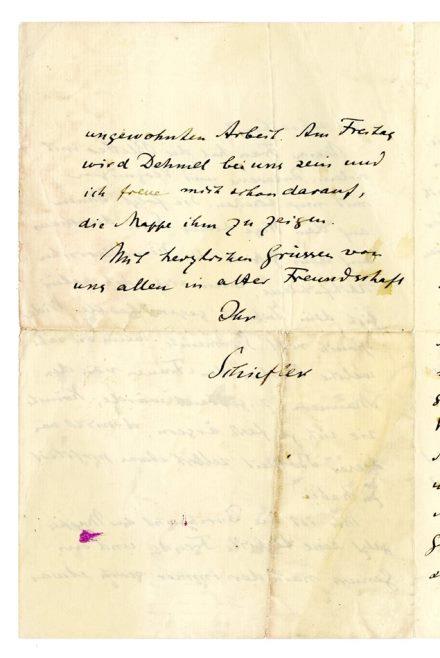 ungewohnten Arbeit. Am Freitag
wird Dehmel bei uns sein und
ich freue mich schon darauf,
die Mappe ihm zu zeigen.
Mit herzlichen Grüssen von
uns allen in alter Freundschaft
Ihr
Schiefler